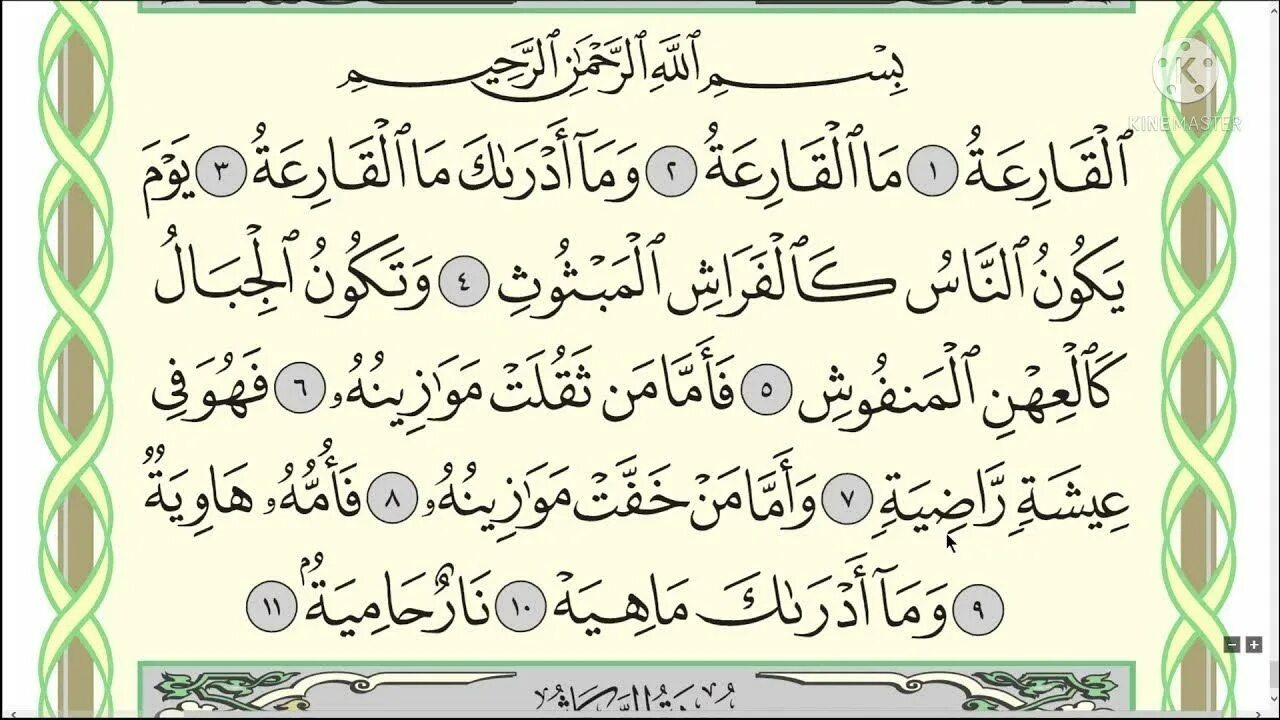 بِسْمِ ٱللَّهِ ٱلرَّحْمَٰنِ ٱلرَّحِيمِ
KINEMASTER
ٱلْقَارِعَةُ ١ مَا ٱلْقَارِعَةُ ٢ وَمَآ أَدْرَىٰكَ مَا ٱلْقَارِعَةُ ٣ يَوْمَ
يَكُونُ ٱلنَّاسُ كَٱلْفَرَاشِ ٱلْمَبْثُوثِ ٤ وَتَكُونُ ٱلْجِبَالُ
كَٱلْعِهْنِ ٱلْمَنفُوشِ ٥ فَأَمَّا مَن ثَقُلَتْ مَوَٰزِينُهُۥ ٦ فَهُوَ فِى
عِيشَةٍ رَّاضِيَةٍ ٧ وَأَمَّا مَنْ خَفَّتْ مَوَٰزِينُهُۥ ٨ فَأُمُّهُۥ هَاوِيَةٌ
٩ وَمَآ أَدْرَىٰكَ مَا هِيَهْ ١٠ نَارٌ حَامِيَةٌۢ ١١